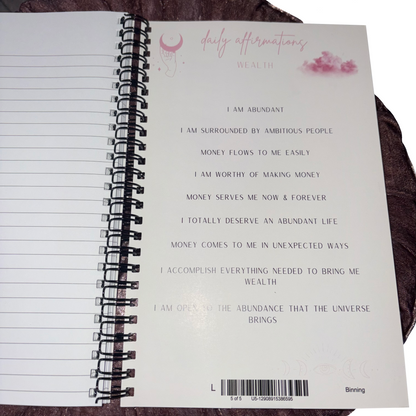 daily affirmations
WEALTH
I AM ABUNDANT
I AM SURROUNDED BY AMBITIOUS PEOPLE
MONEY FLOWS TO ME EASILY
I AM WORTHY OF MAKING MONEY
MONEY SERVES ME NOW & FOREVER
I TOTALLY DESERVE AN ABUNDANT LIFE
MONEY COMES TO ME IN UNEXPECTED WAYS
I ACCOMPLISH EVERYTHING NEEDED TO BRING ME
WEALTH
I AM OPEN TO THE ABUNDANCE THAT THE UNIVERSE
BRINGS
L
Binning
5 of 5 US-12908915386595